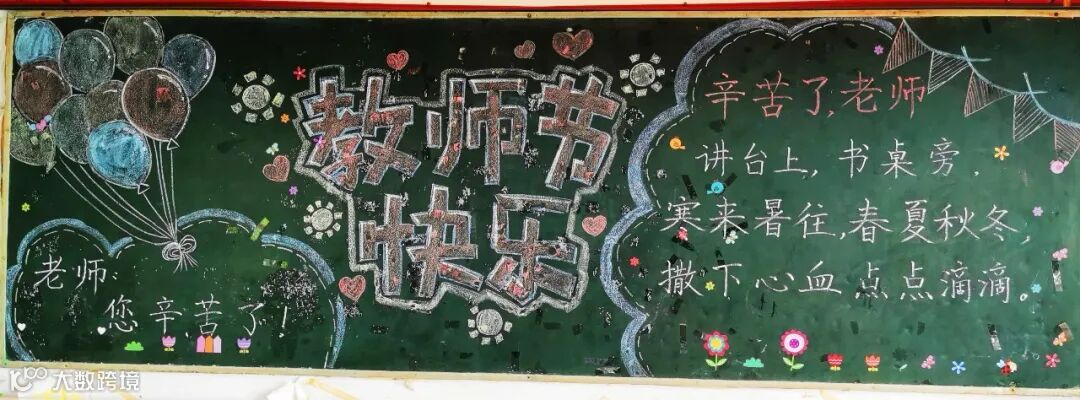 教师节
快乐
老师:
您辛苦了!
辛苦了,老师
讲台上,书桌旁,
寒来暑往,春夏秋冬,
撒下心血点点滴滴。
大数跨境